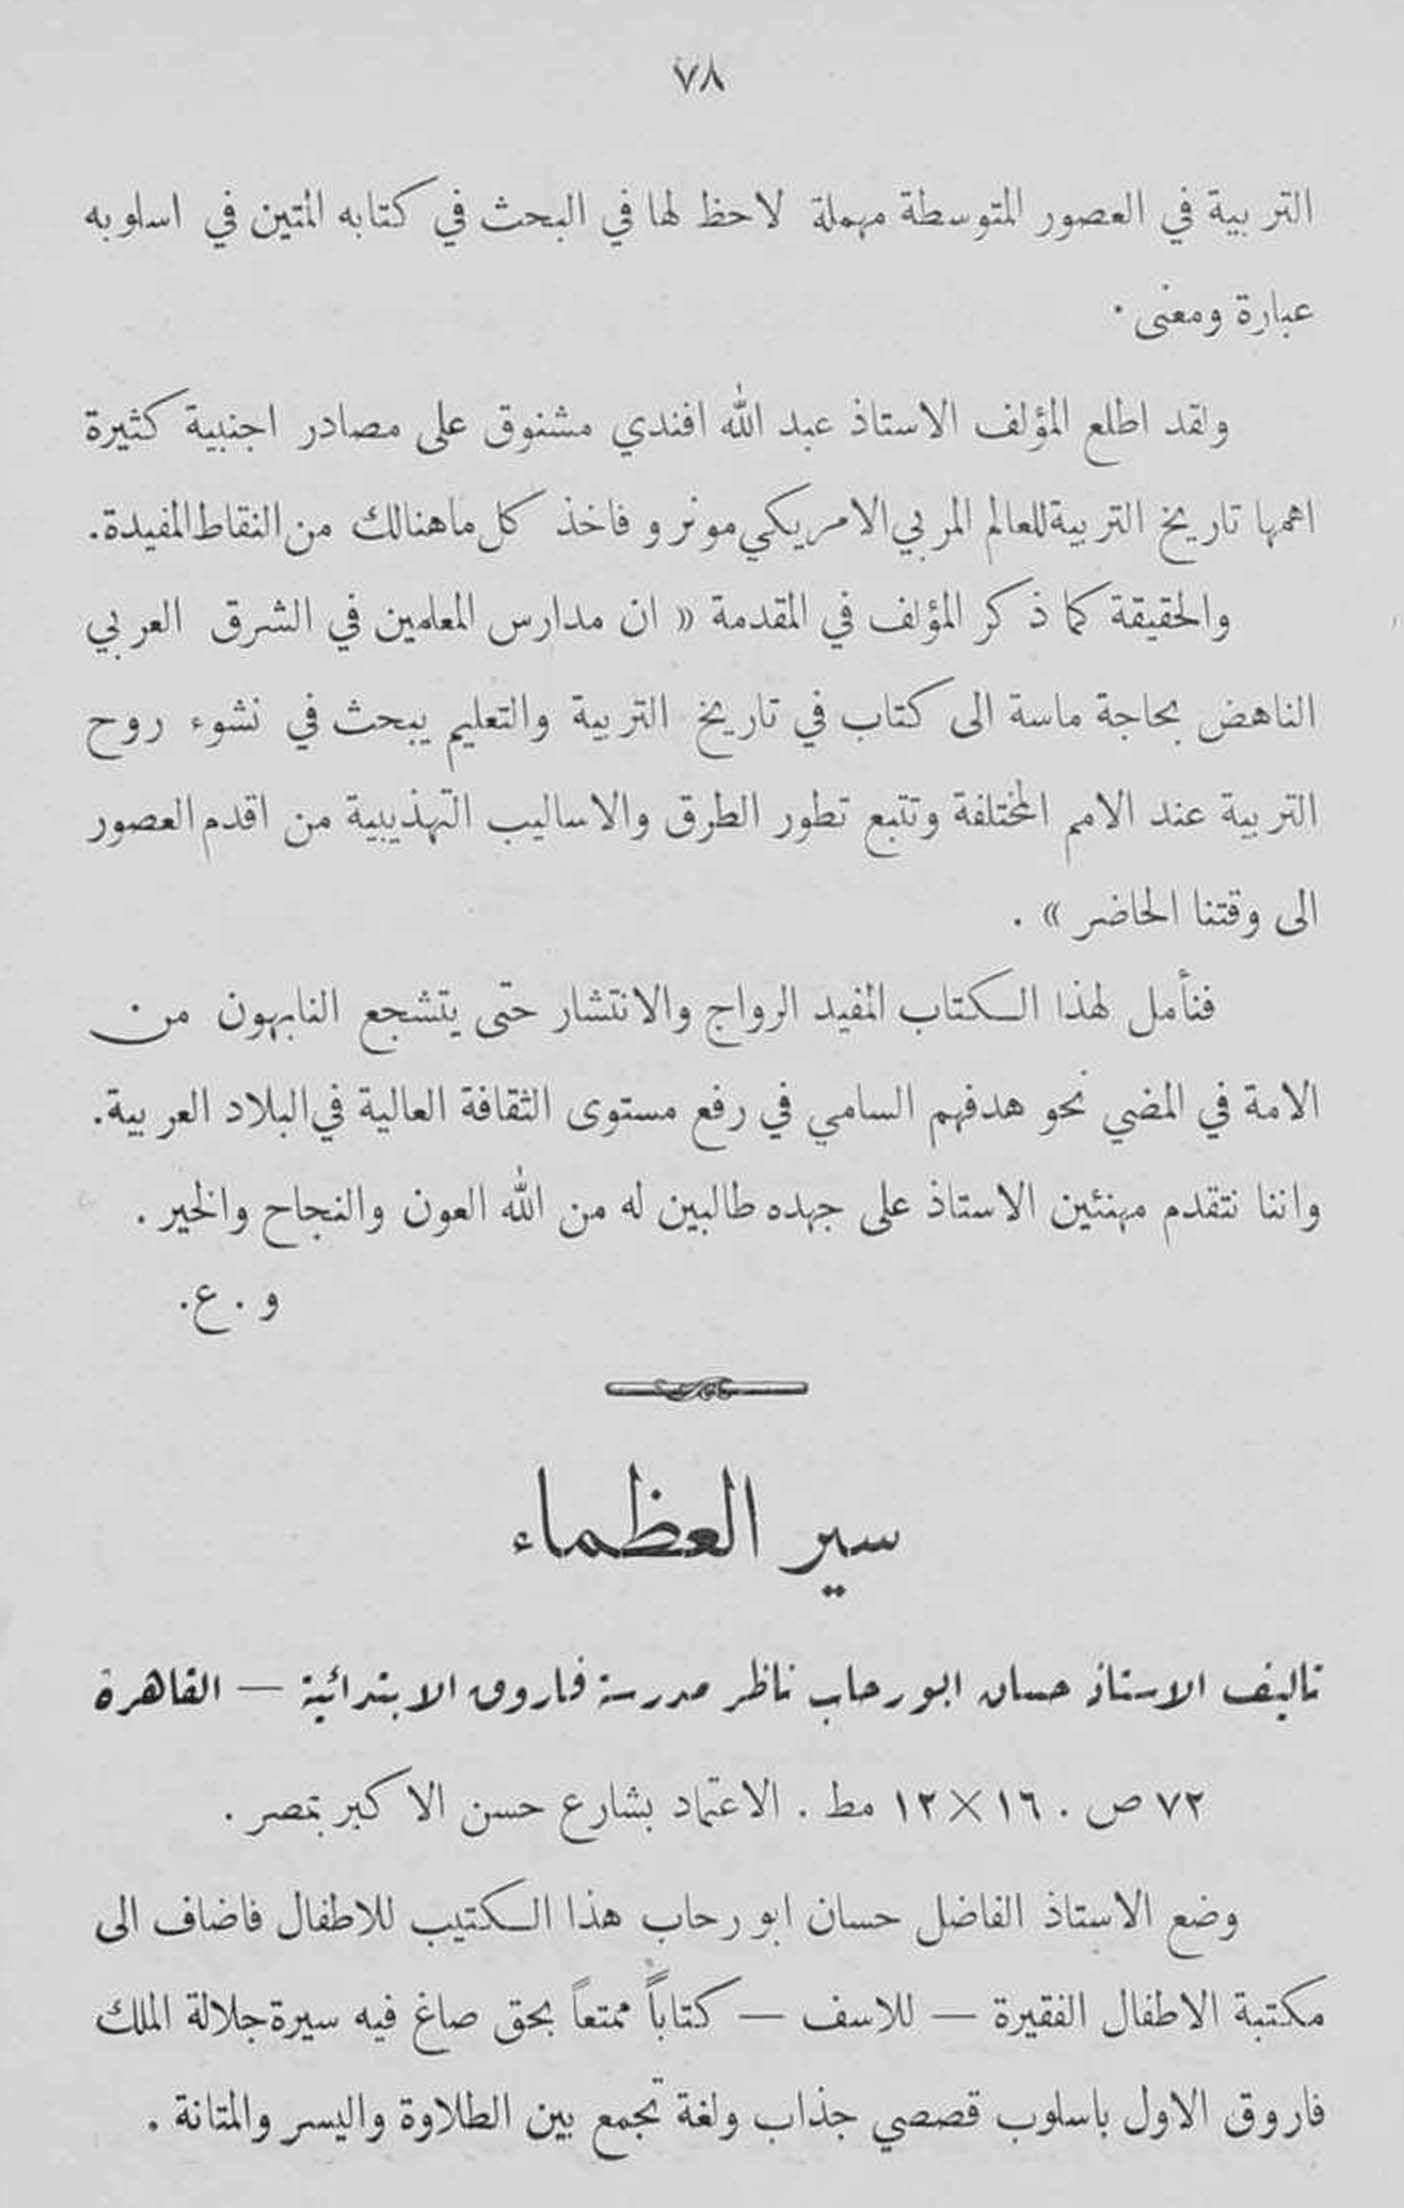 ٧٨
التربية في العصور المتوسطة مهملة لاحظ لها في البحث في كتابه المتين في اسلوبه
عبارة ومعنى .
ولقد اطلع المؤلف الاستاذ عبد الله افندي مشنوق على مصادر اجنبية كثيرة
اهمها تاريخ التربية للعالم المربي الامريكي مونرو فاخذ كل ما هنالك من النقاط المفيدة.
والحقيقة كما ذكر المؤلف في المقدمة « ان مدارس المعلمين في الشرق العربي
الناهض بحاجة ماسة الى كتاب في تاريخ التربية والتعليم يبحث في نشوء روح
التربية عند الامم المختلفة وتتبع تطور الطرق والاساليب التهذيبية من اقدم العصور
الى وقتنا الحاضر » .
فنأمل لهذا الكتاب المفيد الرواج والانتشار حتى يتشجع النابهون من
الامة في المضي نحو هدفهم السامي في رفع مستوى الثقافة العالية في البلاد العربية.
واننا نتقدم مهنئين الاستاذ على جهده طالبين له من الله العون والنجاح والخير .
و . ع .
سير العظماء
تاليف الاستاذ حسان ابو رحاب ناظر مدرسة فاروق الابتدائية — القاهرة
٧٢ ص . ١٦ × ١٢ مط . الاعتماد بشارع حسن الاكبر بمصر .
وضع الاستاذ الفاضل حسان ابو رحاب هذا الكتيب للاطفال فاضاف الى
مكتبة الاطفال الفقيرة — للاسف — كتاباً ممتعاً بحق صاغ فيه سيرة جلالة الملك
فاروق الاول باسلوب قصصي جذاب ولغة تجمع بين الطلاوة واليسر والمتانة .